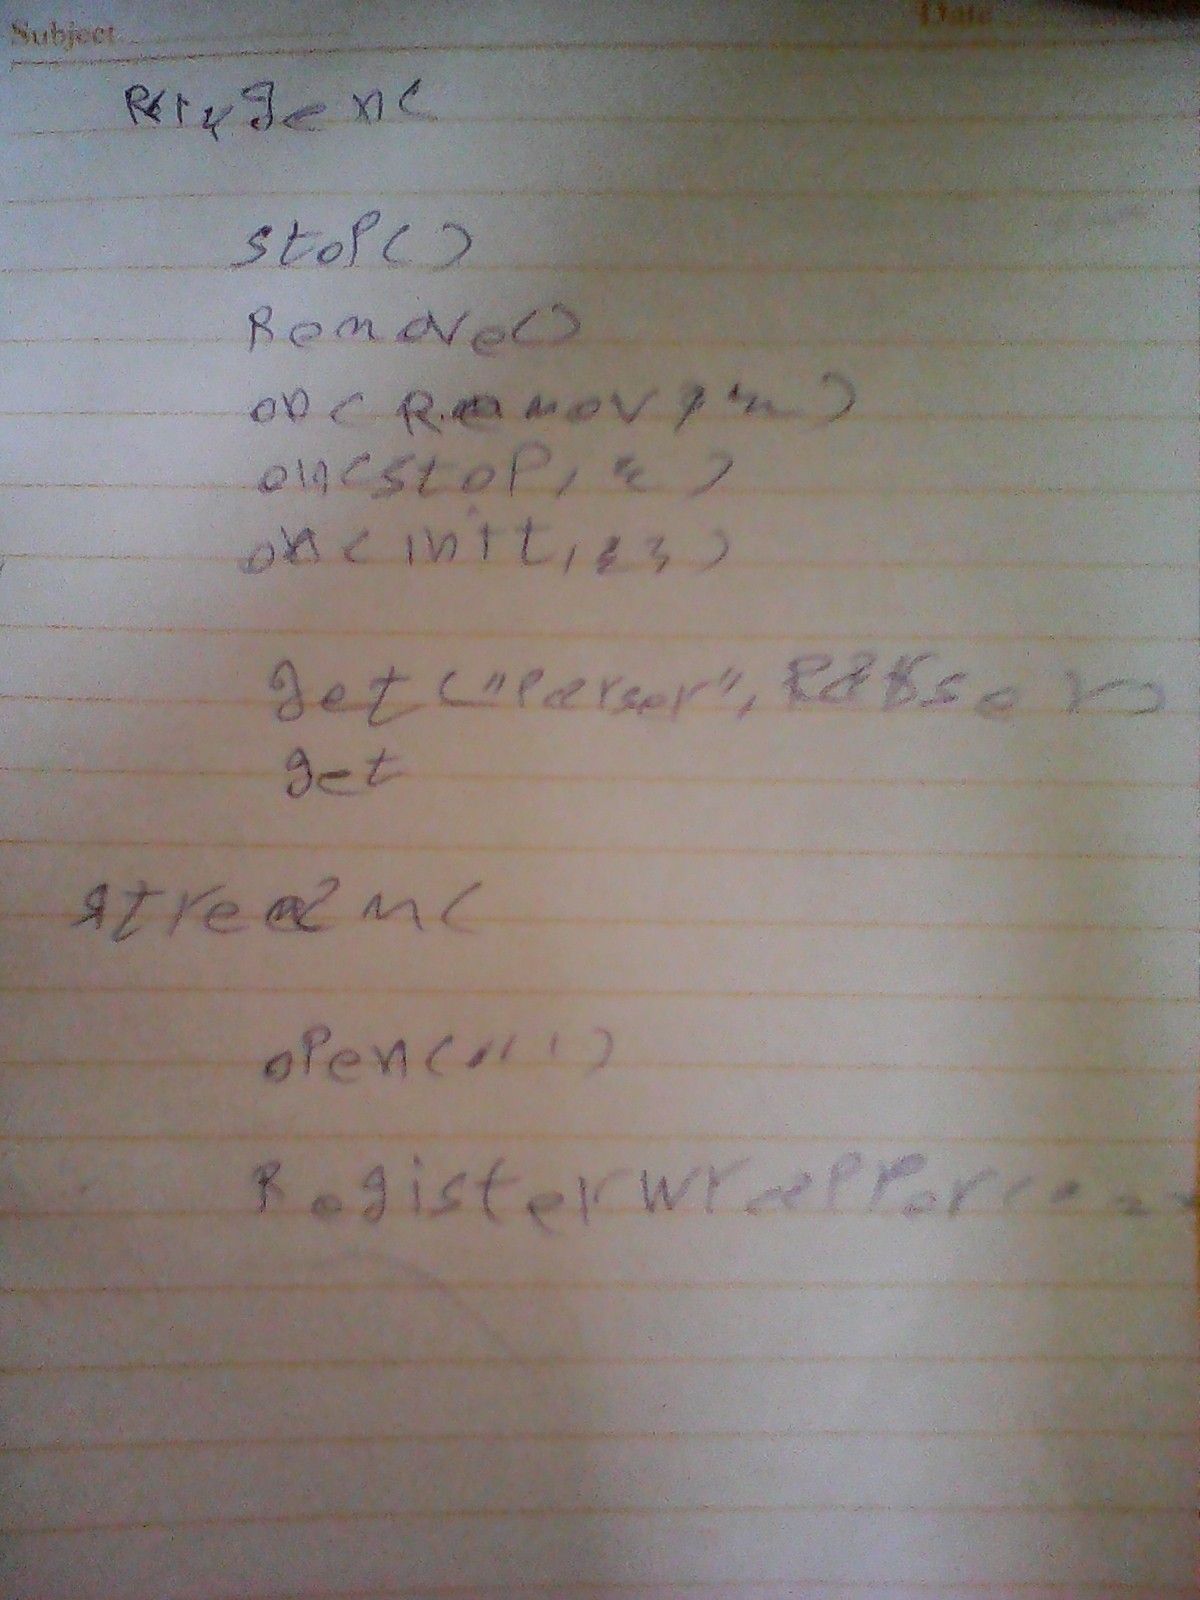 Subject Date
stop()
Remove()
on(Remov, " )
on(stop, " )
on(init, " )
get("Parser", Parser)
get
open("")
RegisterWrapper(